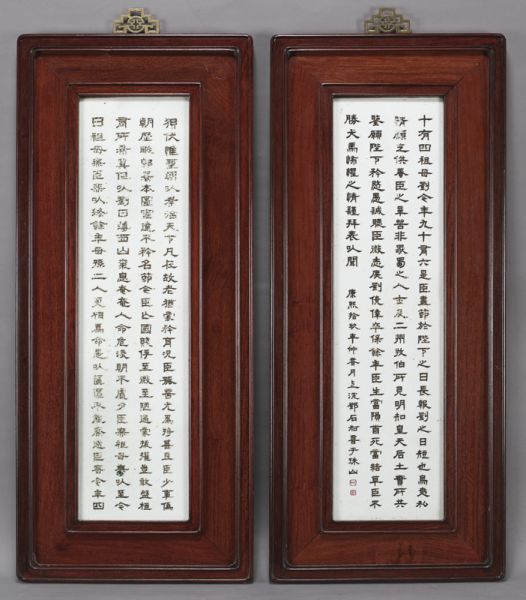 伏惟聖朝以孝治天下凡在故老猶蒙矜育況臣孤苦尤為特甚且臣少事偽
朝歷職郎署本圖宦達不矜名節今臣亡國賤俘至微至陋過蒙拔擢豈敢盤桓
有所希冀但以劉日薄西山氣息奄奄人命危淺朝不慮夕臣無祖母無以至今
日祖母無臣無以終餘年母孫二人更相為命是以區區不能廢遠臣密今年四
十有四祖母劉今年九十有六是臣盡節於陛下之日長報劉之日短也烏鳥私
情願乞供養臣之辛苦非獨蜀之人士及二州牧伯所見明知皇天后土實所共
鑒願陛下矜愍愚誠聽臣微志庶劉僥倖卒保餘年臣生當隕首死當結草臣不
勝犬馬怖懼之情謹拜表以聞
康熙拾玖年仲春月上浣鄧石如書于珠山